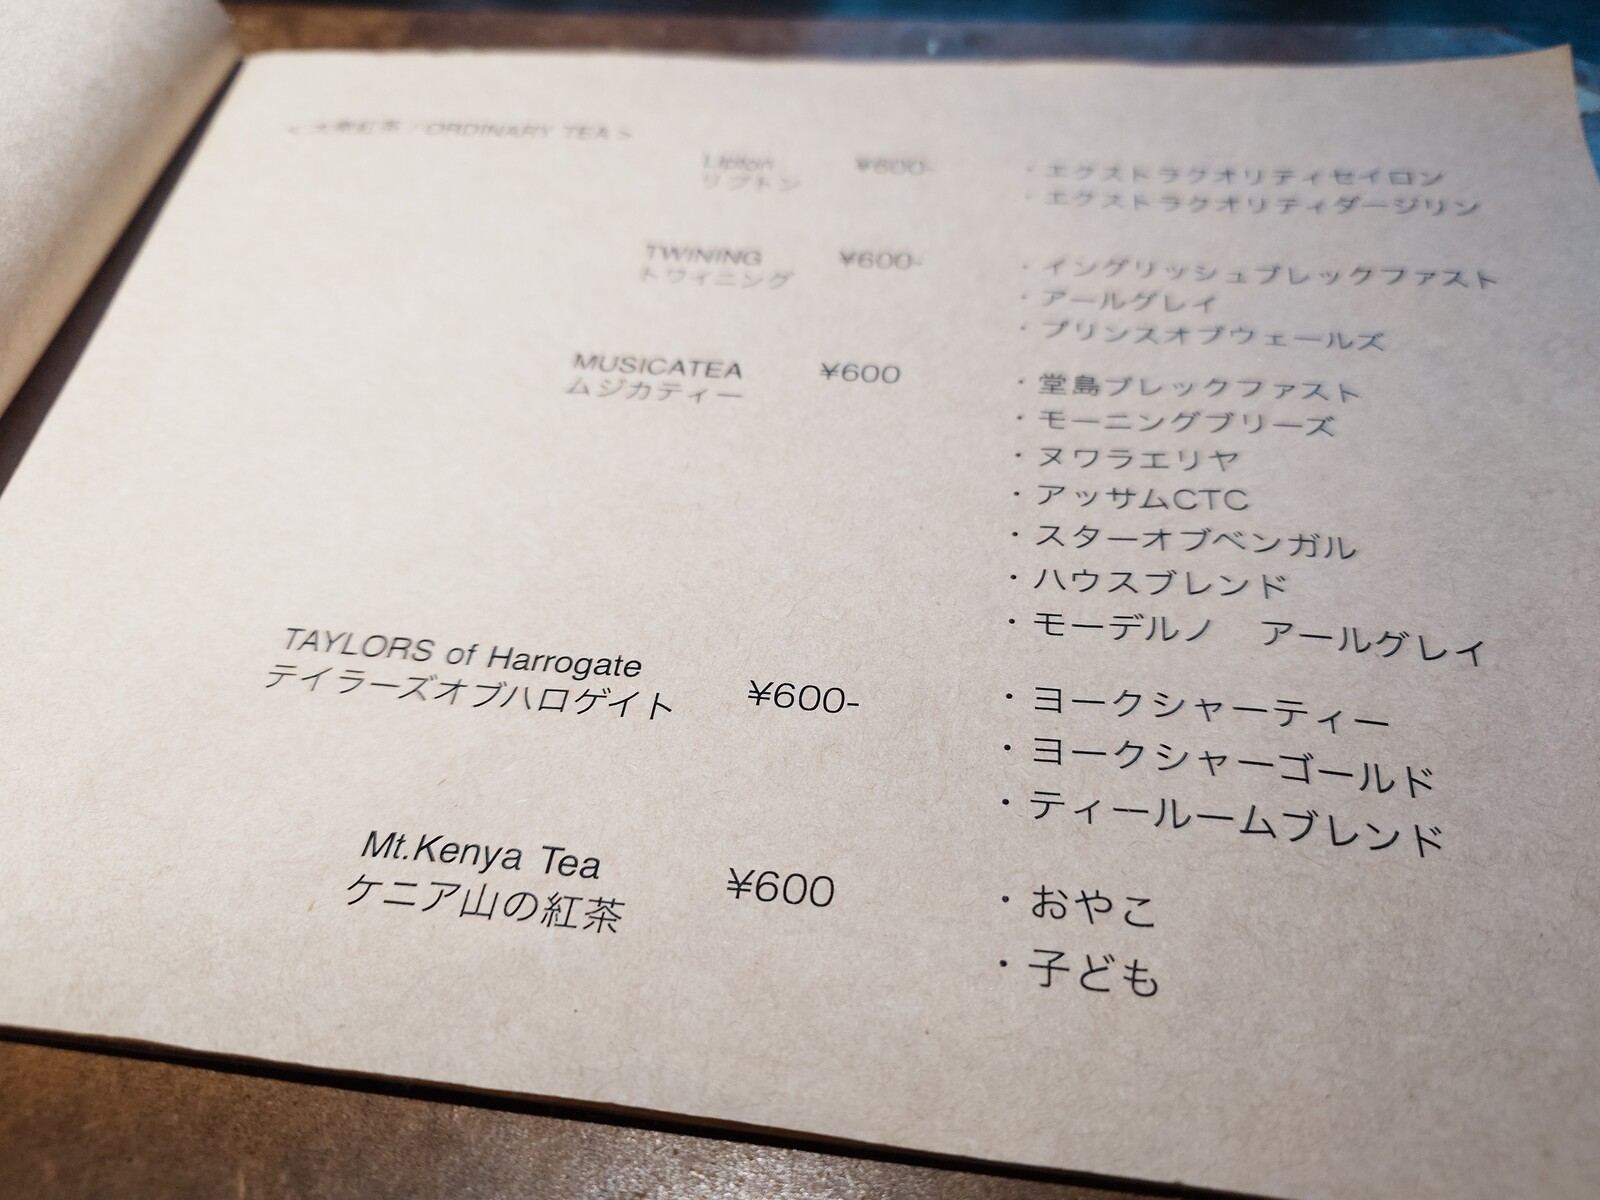 <大衆紅茶 / ORDINARY TEA>
Lipton ¥600- ・エクストラクオリティセイロン
リプトン ・エクストラクオリティダージリン
TWINING ¥600- ・イングリッシュブレックファスト
トワイニング ・アールグレイ
・プリンスオブウェールズ
MUSICATEA ¥600 ・堂島ブレックファスト
ムジカティー ・モーニングブリーズ
・ヌワラエリヤ
・アッサムCTC
・スターオブベンガル
・ハウスブレンド
・モーデルノ　アールグレイ
TAYLORS of Harrogate ¥600- ・ヨークシャーティー
テイラーズオブハロゲイト ・ヨークシャーゴールド
・ティールームブレンド
Mt.Kenya Tea ¥600 ・おやこ
ケニア山の紅茶 ・子ども